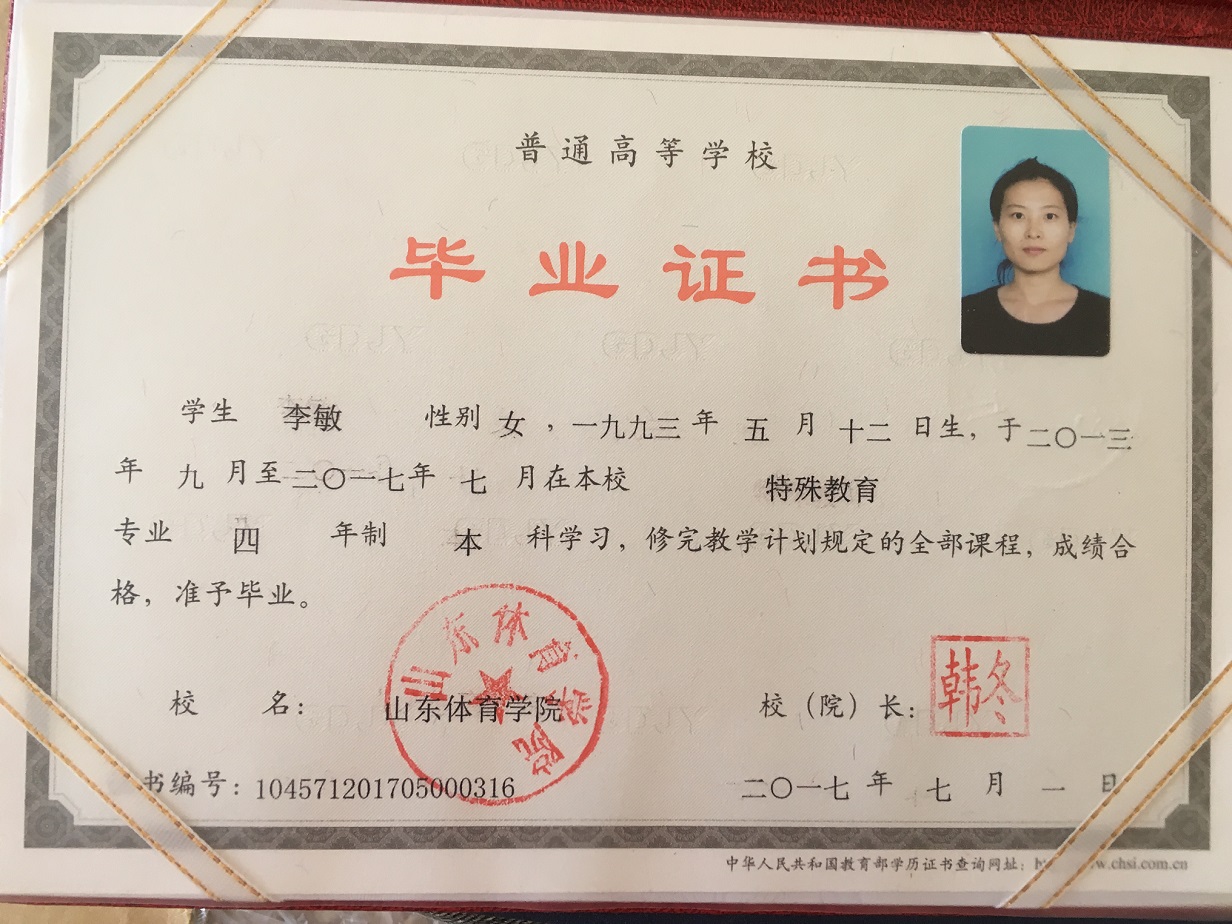 普通高等学校
毕业证书
学生 李敏 性别 女 ，一九九三 年 五 月 十二 日生，于 二〇一三
年 九 月至 二〇一七 年 七 月在本校 特殊教育
专业 四 年制 本 科学习，修完教学计划规定的全部课程，成绩合
格，准予毕业。
山东体育学院
韩冬
校 名： 山东体育学院 校（院）长：
书编号：104571201705000316 二〇一七 年 七 月 一 日
中华人民共和国教育部学历证书查询网址： www.chsi.com.cn